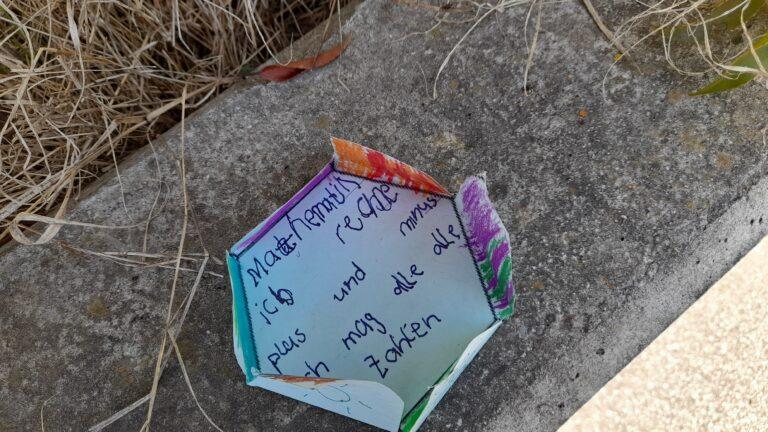 Mathematik
ich rechne
plus und minus
ch mag alle alle
Zahlen